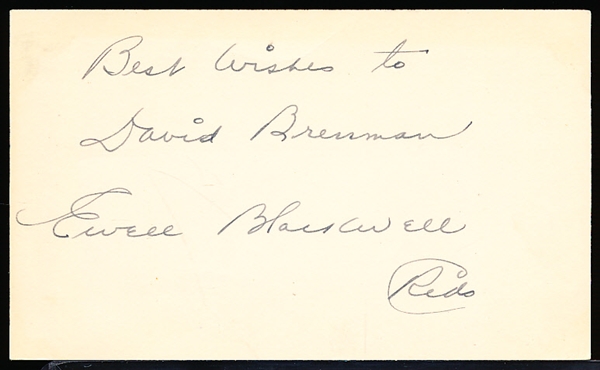 Best Wishes to
David Brenman
Ewell Blackwell
Reds